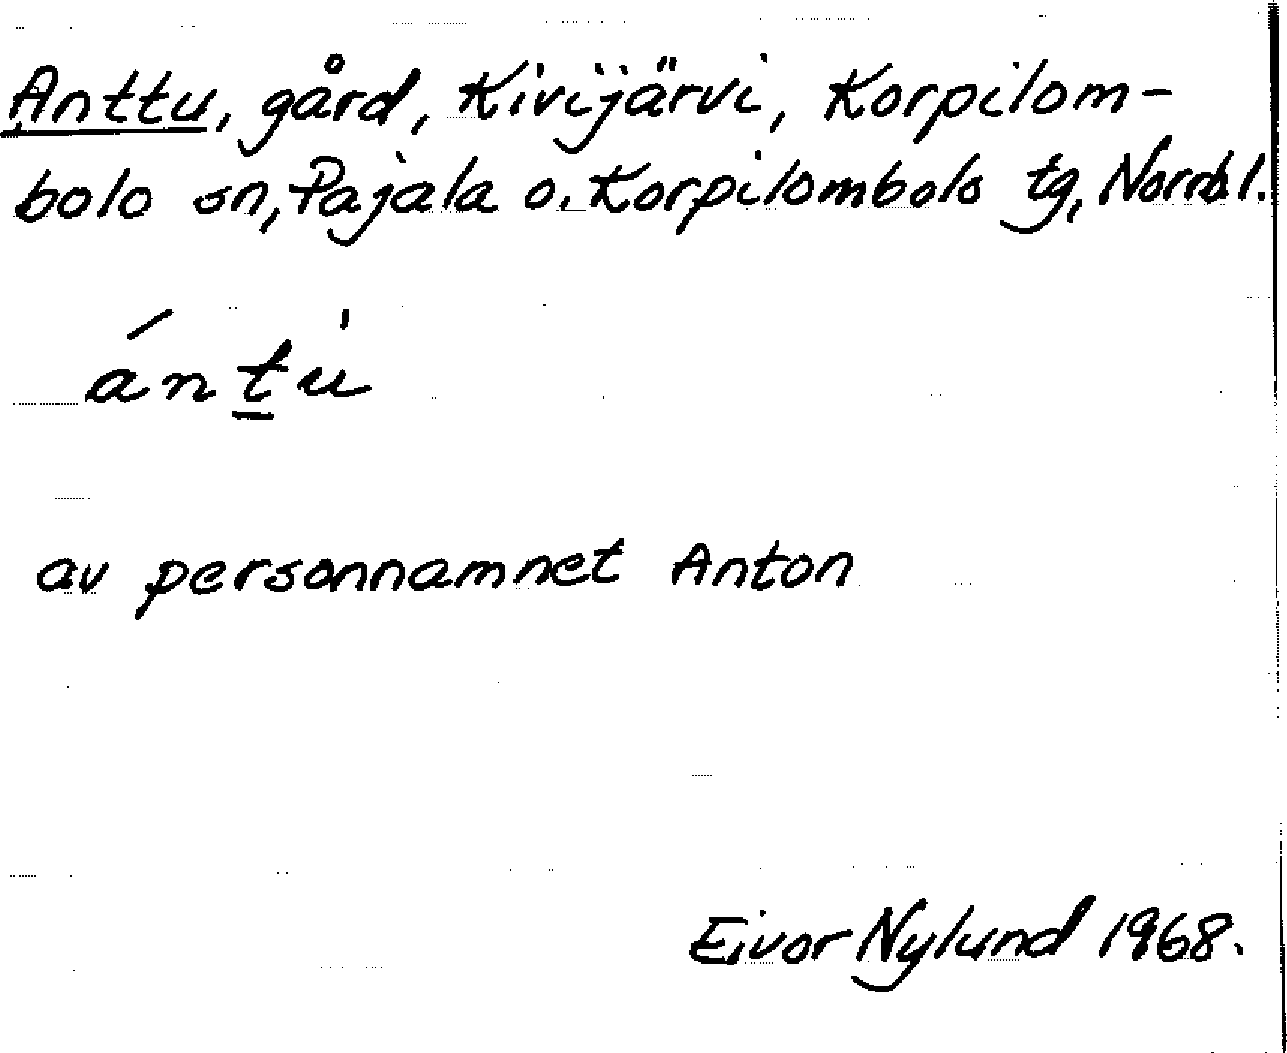 Anttu, gård, Kivijärvi, Korpilom-
bolo sn, Pajala o. Korpilombolo tg, Norrb l.
ántu̍
av personnamnet Anton
Eivor Nylund 1968.